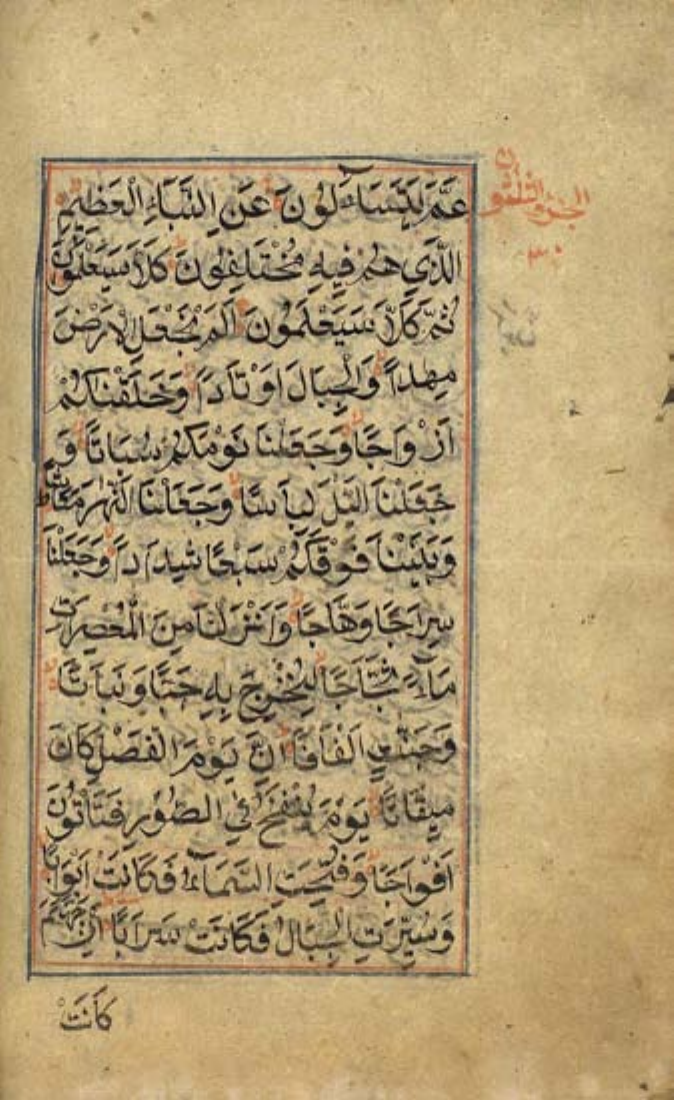 عَمَّ يَتَسَاءَلُونَ عَنِ النَّبَإِ الْعَظِيمِ
الَّذِي هُمْ فِيهِ مُخْتَلِفُونَ كَلَّا سَيَعْلَمُونَ
ثُمَّ كَلَّا سَيَعْلَمُونَ اَلَمْ نَجْعَلِ الْاَرْضَ
مِهٰدًا وَالْجِبَالَ اَوْتَادًا وَخَلَقْنٰكُمْ
اَزْوَاجًا وَجَعَلْنَا نَوْمَكُمْ سُبَاتًا وَ
جَعَلْنَا الَّيْلَ لِبَاسًا وَجَعَلْنَا النَّهٰرَ مَعَاشًا
وَبَنَيْنَا فَوْقَكُمْ سَبْعًا شِدَادًا وَجَعَلْنَا
سِرَاجًا وَهَّاجًا وَاَنْزَلْنَا مِنَ الْمُعْصِرٰتِ
مَاءً ثَجَّاجًا لِنُخْرِجَ بِهِ حَبًّا وَنَبَاتًا
وَجَنّٰتٍ اَلْفَافًا اِنَّ يَوْمَ الْفَصْلِ كَانَ
مِيقَاتًا يَوْمَ يُنْفَخُ فِي الصُّورِ فَتَأْتُونَ
اَفْوَاجًا وَفُتِحَتِ السَّمَاءُ فَكَانَتْ اَبْوَابًا
وَسُيِّرَتِ الْجِبَالُ فَكَانَتْ سَرَابًا اِنَّ جَهَنَّمَ
كَانَتْ
الجزو الثلثون
٣٠